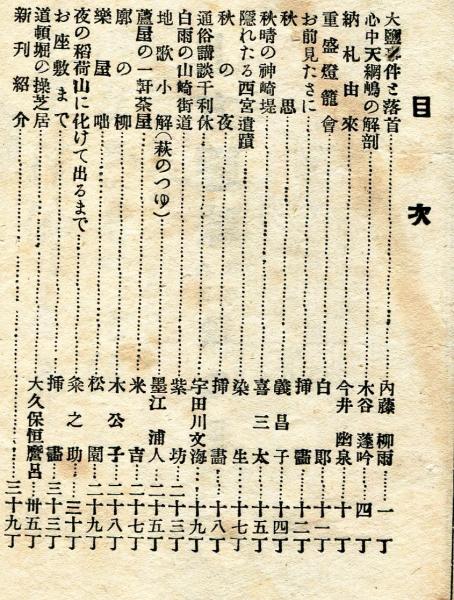 目次
大鹽事件と落首……內藤柳雨…一丁
心中天網嶋の解剖……木谷蓬吟…四丁
納札由來……今井幽泉…十丁
重盛燈籠會……白郎…十一丁
お前見たさに……挿畵…十二丁
秋思……義昌子…十四丁
秋晴の神崎堤……喜三太…十五丁
隱れたる西宮遺蹟……染生…十七丁
秋の夜……挿畵…十八丁
通俗講談千利休……宇田川文海…十九丁
白雨の山崎街道……紫坊…二十三丁
地歌小解(萩のつゆ)……墨江浦人…二十五丁
蘆屋の一軒茶屋……米吉…二十七丁
廓の柳……木公子…二十八丁
樂屋咄……松園…二十九丁
夜の稻荷山に化けて出るまで……粂之助…三十丁
お座敷まで……挿畵…三十三丁
道頓堀の操芝居……大久保恒麿呂…卅五丁
新刊紹介……三十九丁